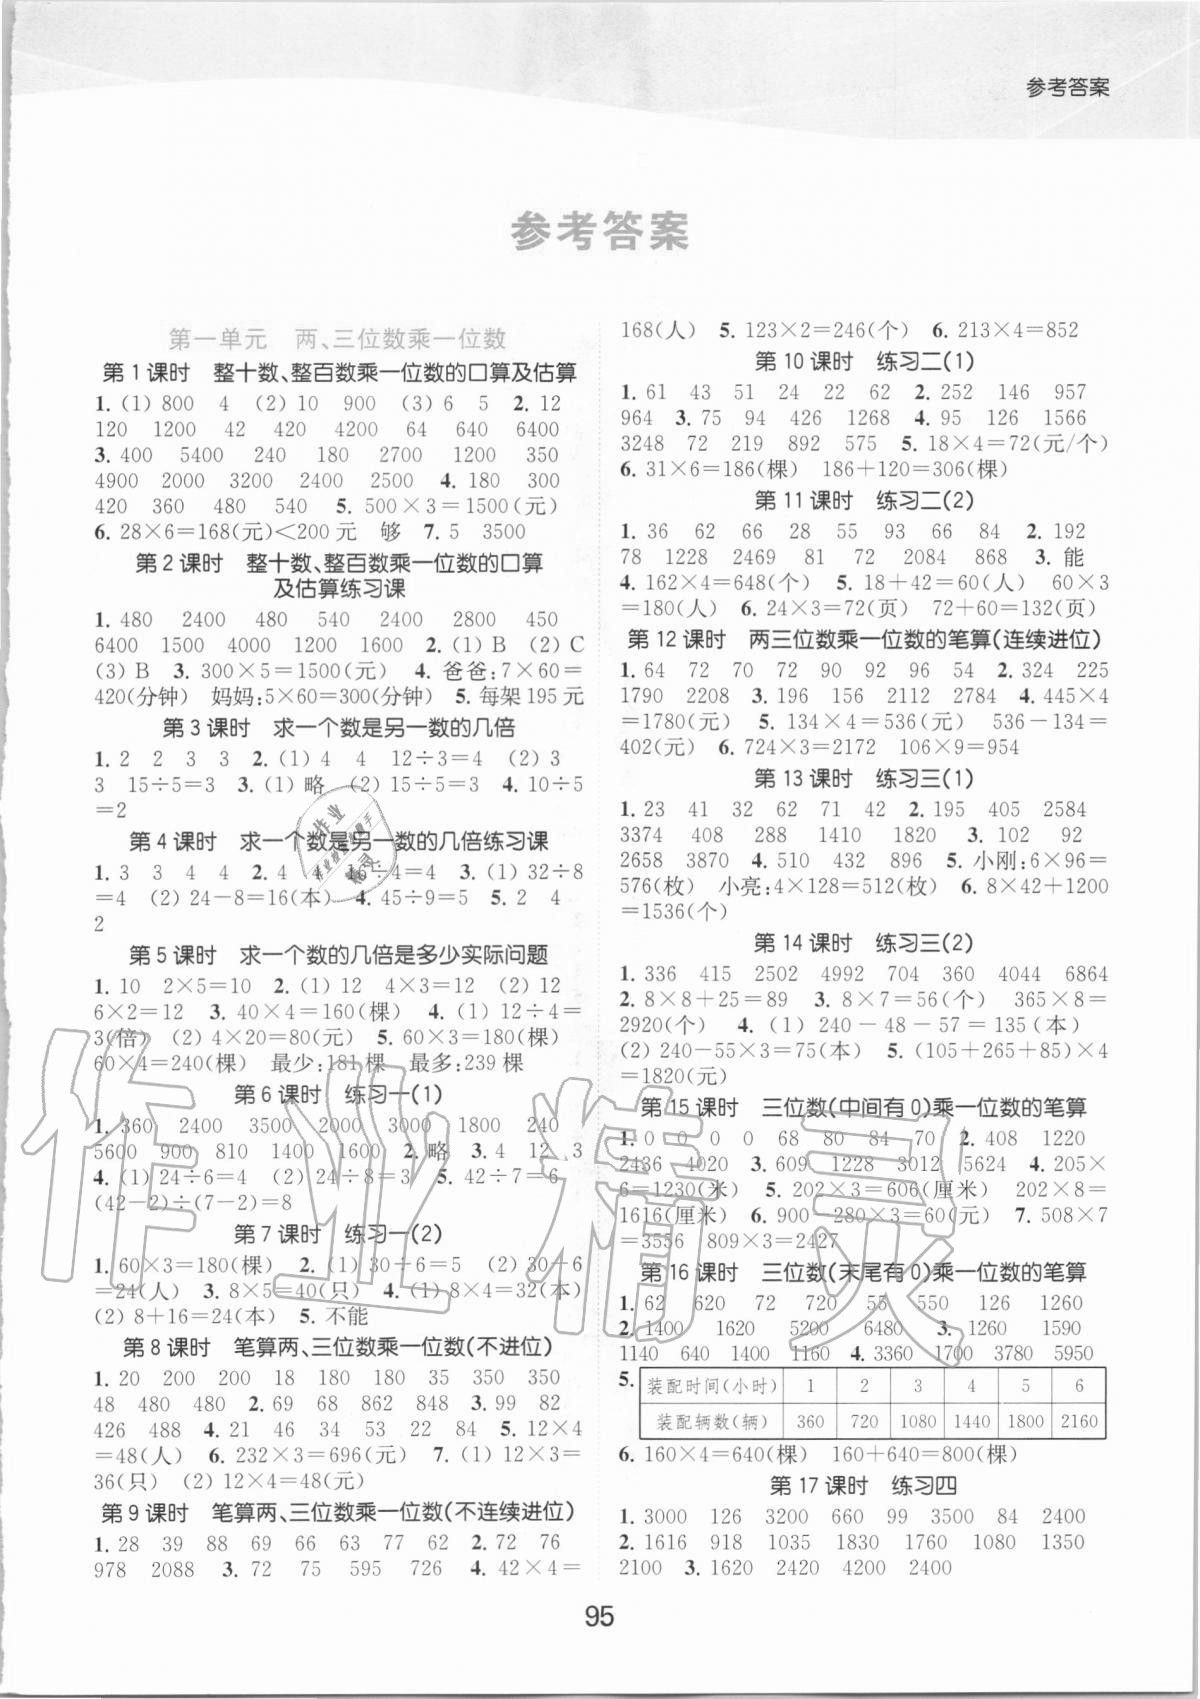 参考答案
参考答案
第一单元 两、三位数乘一位数
第1课时 整十数、整百数乘一位数的口算及估算
1. (1) 800 4 (2) 10 900 (3) 6 5 2. 12
120 1200 42 420 4200 64 640 6400
3. 400 5400 240 180 2700 1200 350
4900 2000 3200 2400 2500 4. 180 300
420 360 480 540 5. 500×3=1500(元)
6. 28×6=168(元)<200元 够 7. 5 3500
第2课时 整十数、整百数乘一位数的口算
及估算练习课
1. 480 2400 480 540 2400 2800 450
6400 1500 4000 1200 1600 2. (1) B (2) C
(3) B 3. 300×5=1500(元) 4. 爸爸:7×60=
420(分钟) 妈妈:5×60=300(分钟) 5. 每架195元
第3课时 求一个数是另一数的几倍
1. 2 2 3 3 2. (1) 4 4 12÷3=4 (2) 3
3 15÷5=3 3. (1) 略 (2) 15÷5=3 4. 10÷5
=2
第4课时 求一个数是另一数的几倍练习课
1. 3 3 4 4 2. 4 4 16÷4=4 3. (1) 32÷8
=4 (2) 24-8=16(本) 4. 45÷9=5 5. 2 4
2
第5课时 求一个数的几倍是多少实际问题
1. 10 2×5=10 2. (1) 12 4×3=12 (2) 12
6×2=12 3. 40×4=160(棵) 4. (1) 12÷4=
3(倍) (2) 4×20=80(元) 5. 60×3=180(棵)
60×4=240(棵) 最少:181棵 最多:239棵
第6课时 练习一(1)
1. 360 2400 3500 2000 3000 1800 240
5600 900 810 1400 1600 2. 略 3. 4 12 3
4. (1) 24÷6=4 (2) 24÷8=3 5. 42÷7=6
(42-2)÷(7-2)=8
第7课时 练习一(2)
1. 60×3=180(棵) 2. (1) 30÷6=5 (2) 30+6
=24(人) 3. 8×5=40(只) 4. (1) 8×4=32(本)
(2) 8+16=24(本) 5. 不能
第8课时 笔算两、三位数乘一位数(不进位)
1. 20 200 200 18 180 180 35 350 350
48 480 480 2. 69 68 862 848 3. 99 82
426 488 4. 21 46 34 53 21 5. 12×4
=48(人) 6. 232×3=696(元) 7. (1) 12×3=
36(只) (2) 12×4=48(元)
第9课时 笔算两、三位数乘一位数(不连续进位)
1. 28 39 88 69 66 63 77 62 2. 72 76
978 2088 3. 72 75 595 726 4. 42×4=
168(人) 5. 123×2=246(个) 6. 213×4=852
第10课时 练习二(1)
1. 61 43 51 24 22 62 2. 252 146 957
964 3. 75 94 426 1268 4. 95 126 1566
3248 72 219 892 575 5. 18×4=72(元/个)
6. 31×6=186(棵) 186+120=306(棵)
第11课时 练习二(2)
1. 36 62 66 28 55 93 66 84 2. 192
78 1228 2469 81 72 2084 868 3. 能
4. 162×4=648(个) 5. 18+42=60(人) 60×3
=180(人) 6. 24×3=72(页) 72+60=132(页)
第12课时 两三位数乘一位数的笔算(连续进位)
1. 64 72 70 72 90 92 96 54 2. 324 225
1790 2208 3. 196 156 2112 2784 4. 445×4
=1780(元) 5. 134×4=536(元) 536-134=
402(元) 6. 724×3=2172 106×9=954
第13课时 练习三(1)
1. 23 41 32 62 71 42 2. 195 405 2584
3374 408 288 1440 1410 1820 3. 102 92
2658 3870 4. 510 432 896 5. 小刚:6×96=
576(枚) 小亮:4×128=512(枚) 6. 8×42+1200
=1536(个)
第14课时 练习三(2)
1. 336 415 2502 4992 704 360 4044 6864
2. 8×8+25=89 3. 8×7=56(个) 365×8=
2920(个) 4. (1) 240-48-57=135(本)
(2) 240-55×3=75(本) 5. (105+265+85)×4
=1820(元)
第15课时 三位数(中间有0)乘一位数的笔算
1. 0 0 0 0 68 80 84 70 2. 408 1220
2436 4020 3. 609 1228 3012 5624 4. 205×
6=1230(米) 5. 202×3=606(厘米) 202×8=
1616(厘米) 6. 900-280×3=60(元) 7. 508×7
=3556 809×3=2427
第16课时 三位数(末尾有0)乘一位数的笔算
1. 62 620 72 720 55 550 126 1260
2. 1400 1620 5200 6480 3. 1260 1590
1140 640 1400 1160 4. 3360 1700 3780 5950
5. 装配时间(小时) 1 2 3 4 5 6
装配辆数(辆) 360 720 1080 1440 1800 2160
6. 160×4=640(棵) 160+640=800(棵)
第17课时 练习四
1. 3000 126 3200 660 99 3500 84 2400
2. 1616 918 1035 1830 1760 1080 1350
2100 3. 1620 2420 4200 2400
95
作业精灵